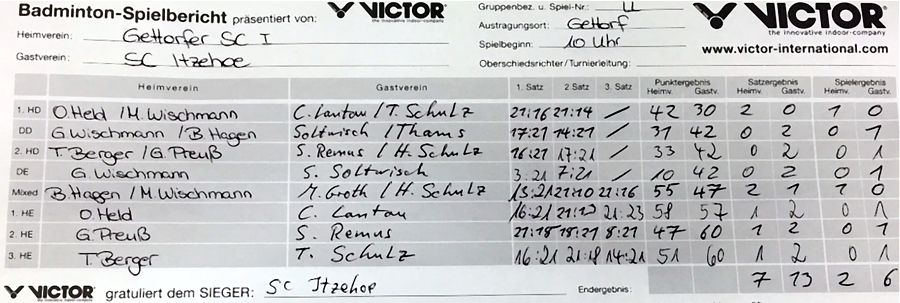 Badminton-Spielbericht präsentiert von: VICTOR the innovative indoor-company
Heimverein: Gettorfer SC I
Gastverein: SC Itzehoe
Gruppenbez. u. Spiel-Nr.: U
Austragungsort: Gettorf
Spielbeginn: 10 Uhr
Oberschiedsrichter/Turnierleitung:
VICTOR
the innovative indoor-company
www.victor-international.com
Heimverein Gastverein 1. Satz 2. Satz 3. Satz Punktergebnis Heimv. Gastv. Satzergebnis Heimv. Gastv. Spielergebnis Heimv. Gastv.
1. HD O.Held / M.Wischmann C. Lantau / T. Schulz 21:16 21:14 / 42 30 2 0 1 0
DD G.Wischmann / B.Hagen Soltwisch / Thams 17:21 14:21 / 31 42 0 2 0 1
2. HD T. Berger / G. Preuß S. Remus / H. Schulz 16:21 17:21 / 33 42 0 2 0 1
DE G. Wischmann S. Soltwisch 3:21 7:21 / 10 42 0 2 0 1
Mixed B.Hagen / M.Wischmann M. Groth / H. Schulz 13:21 21:10 21:16 55 47 2 1 1 0
1. HE O.Held C. Lantau 16:21 21:13 21:23 58 57 1 2 0 1
2. HE G.Preuß S. Remus 21:18 18:21 8:21 47 60 1 2 0 1
3. HE T. Berger T. Schulz 16:21 21:18 14:21 51 60 1 2 0 1
7 13 2 6
VICTOR the innovative indoor-company gratuliert dem SIEGER: SC Itzehoe Endergebnis: